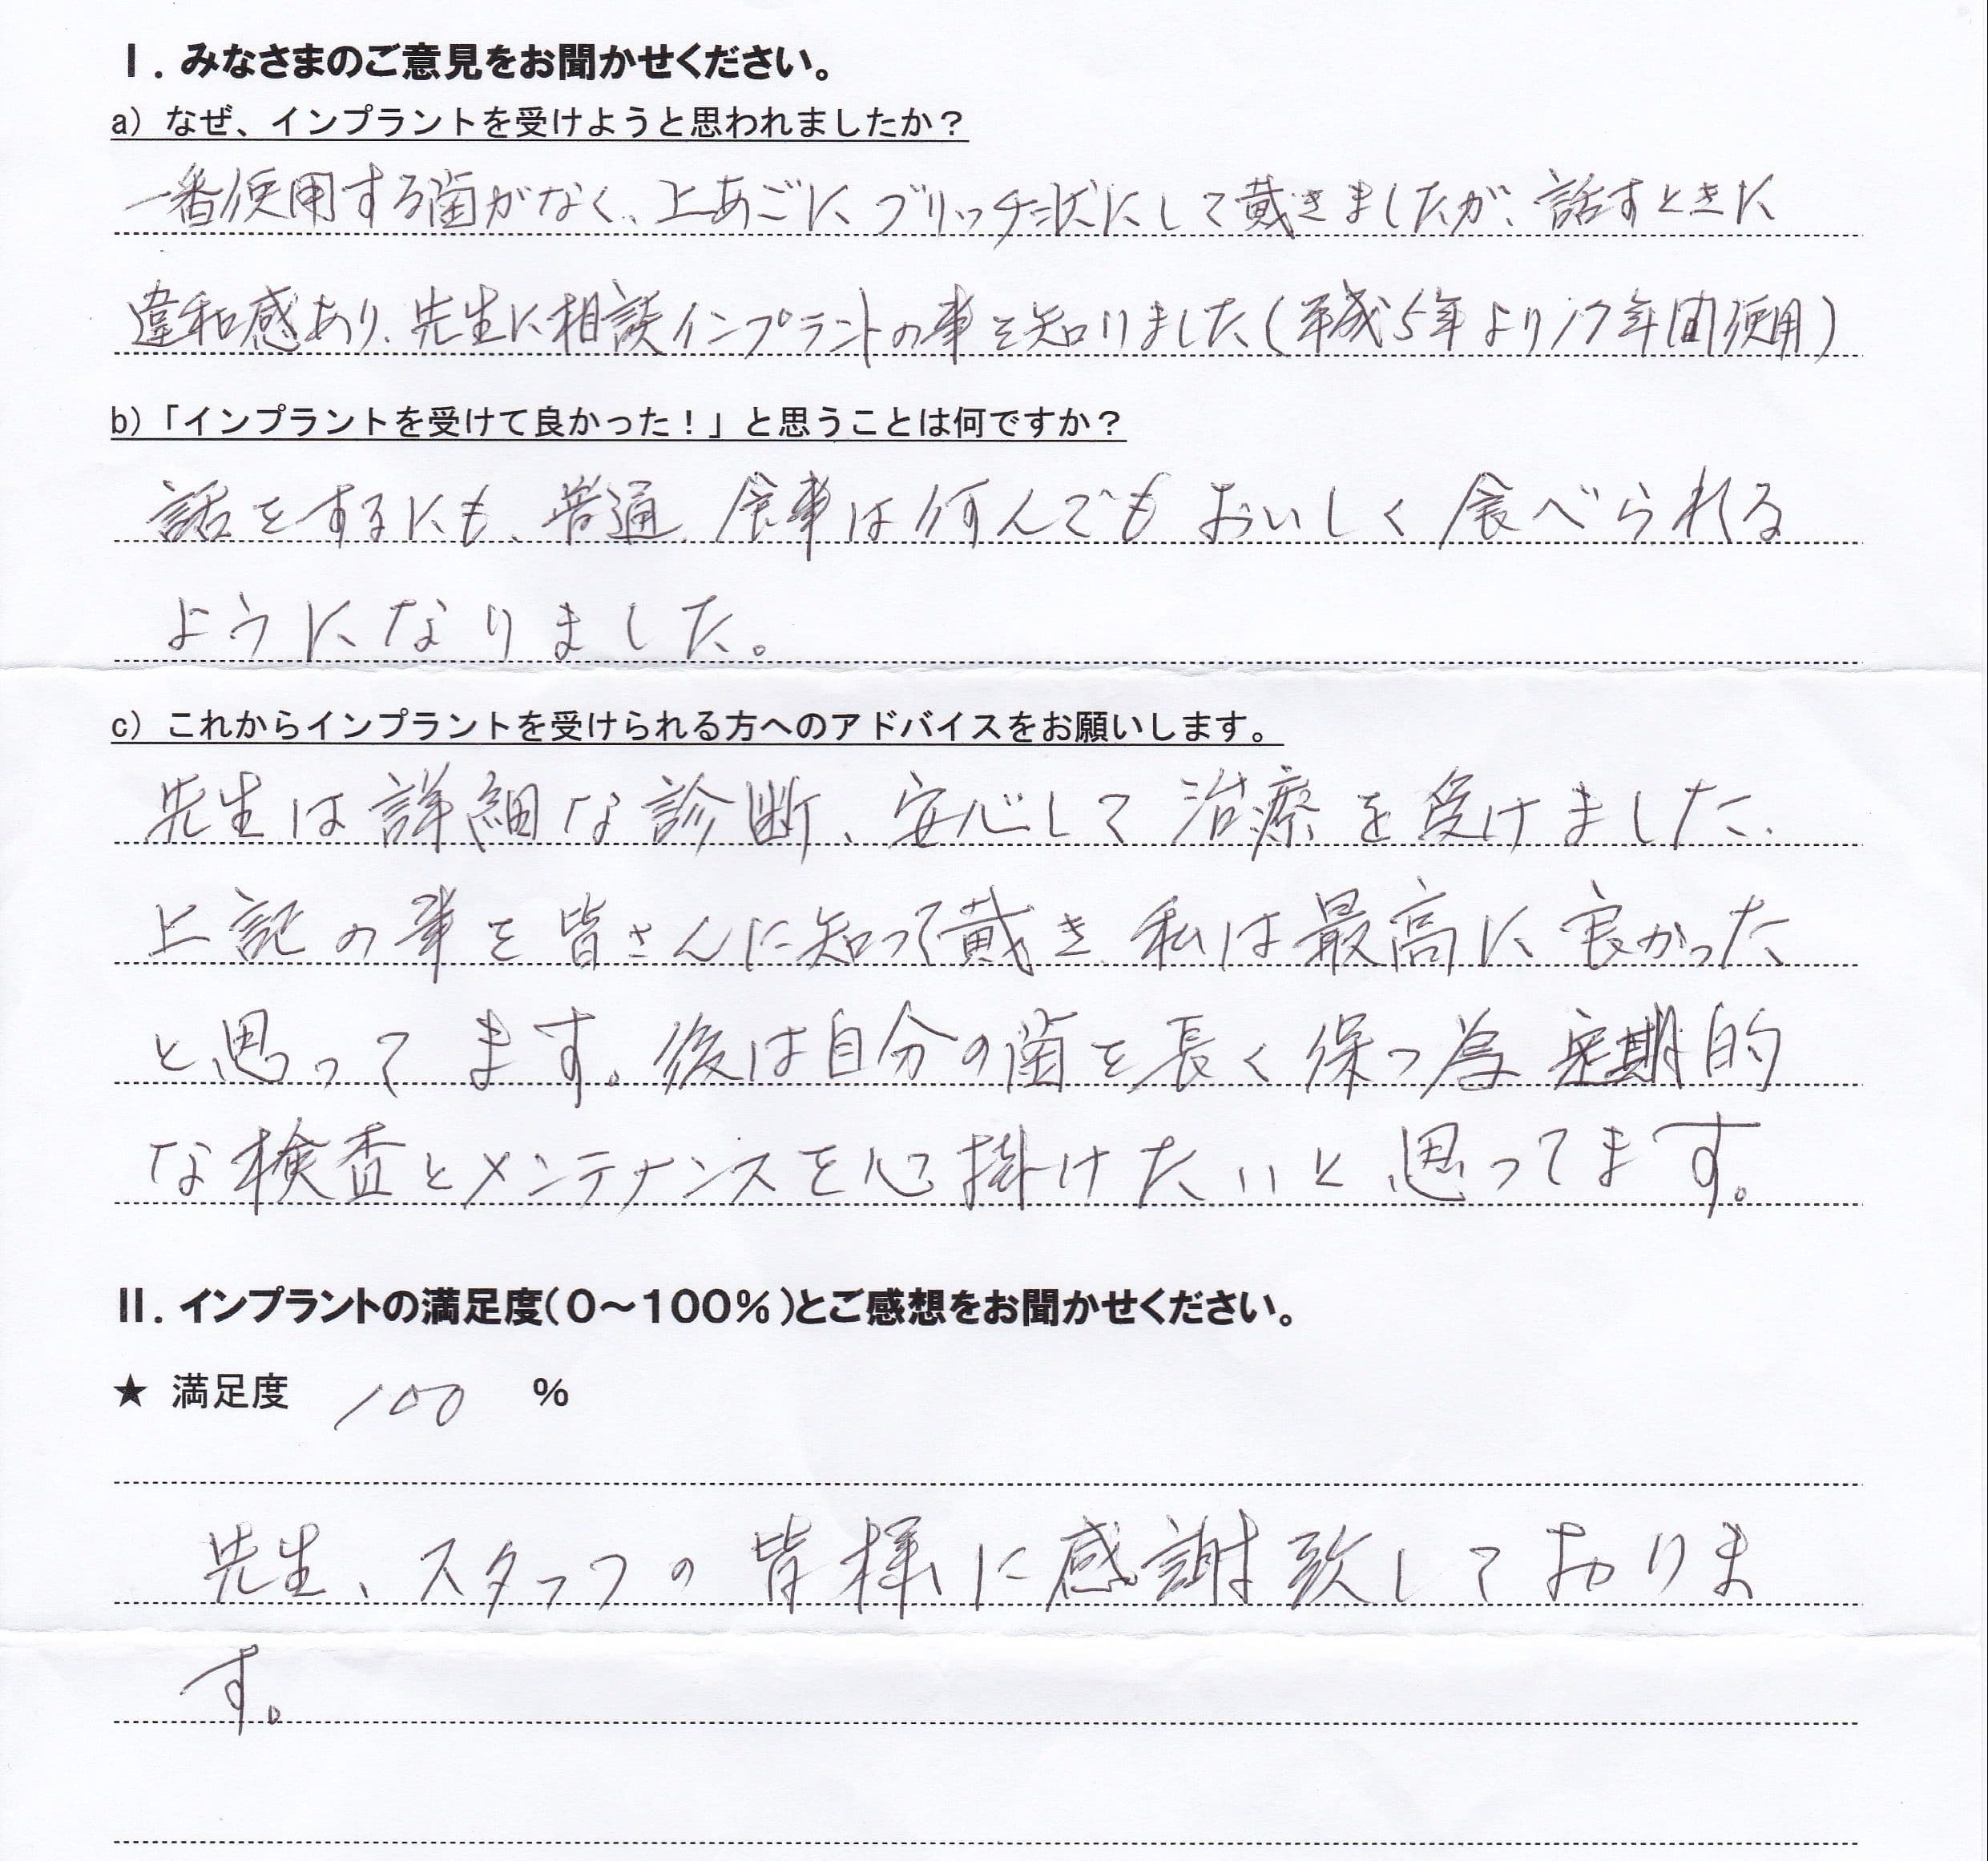 Ⅰ. みなさまのご意見をお聞かせください。
a) なぜ、インプラントを受けようと思われましたか？
一番使用する歯がなく、上あごにブリッチ状にして戴きましたが、話すときに
違和感あり、先生に相談インプラントの事を知りました(平成5年より17年間使用)
b)「インプラントを受けて良かった！」と思うことは何ですか？
話をするにも、普通、食事は何んでもおいしく食べられる
ようになりました。
c) これからインプラントを受けられる方へのアドバイスをお願いします。
先生は詳細な診断、安心して治療を受けました、
上記の事を皆さんに知って戴き、私は最高に良かった
と思ってます。後は自分の歯を長く保つ為定期的
な検査とメンテナンスを心掛けたいと思ってます。
Ⅱ. インプラントの満足度(0～100%)とご感想をお聞かせください。
★ 満足度 100 %
先生、スタッフの皆様に感謝致しておりま
す。